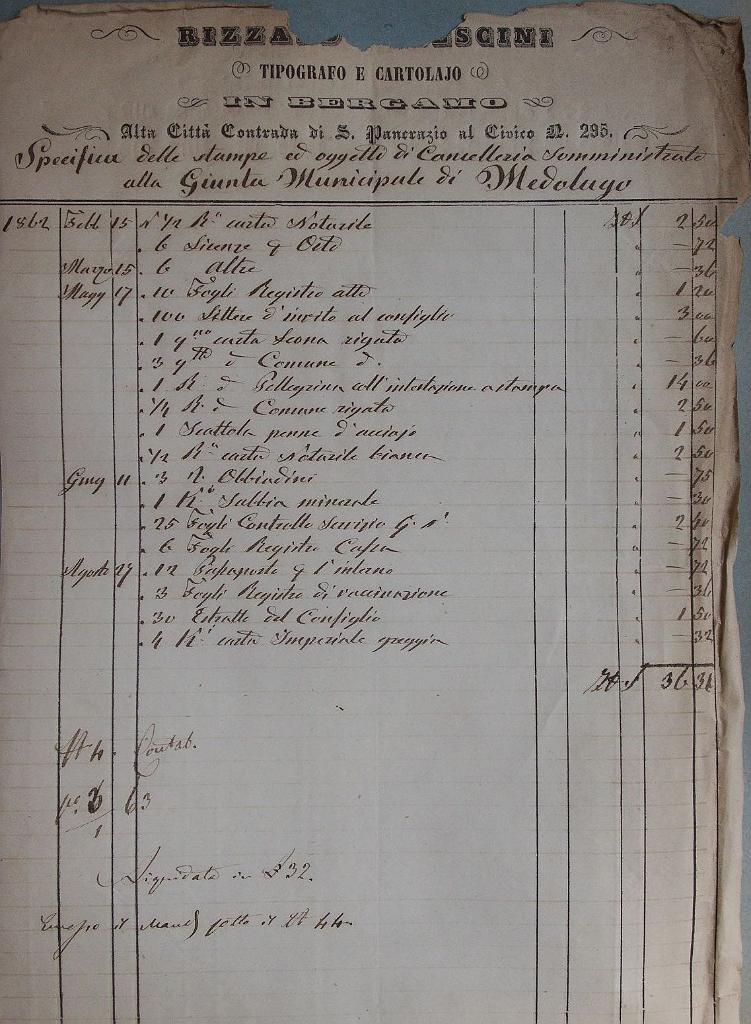 RIZZA SCINI
TIPOGRAFO E CARTOLAJO
IN BERGAMO
Alta Città Contrada di S. Pancrazio al Civico N. 295.
Specifica delle stampe ed oggetti di Cancelleria somministrate
alla Giunta Municipale di Medolago
1862 Febb 15 N ½ Rª carta Notarile 2 50
" 6 Licenze — 72
Marzo 15 " 6 Altre — 36
Magg 17 " 10 Fogli Registro atti 1 20
" 100 Lettere d'invito al consiglio 3 00
" 1 carta Leona rigata — 60
" 3 d Comune d. — 36
" 1 R. d Pellegrina coll'intestazione a stampa 14 00
" ¼ R. d Comune rigata 2 50
" 1 Scattola penne d'acciajo 1 50
" ½ Rª carta Notarile bianca 2 50
Giug 11 " 3 Obbiadini — 75
" 1 K° Sabbia minerale — 30
" 25 Fogli Controllo Servizio G. 2 40
" 6 Fogli Registro Cassa — 72
Agosto 27 " 12 l'interno — 72
" 3 Fogli Registro di vaccinazione — 36
" 30 Estratto del Consiglio 1 50
" 4 carta Imperiale greggia — 32
36 31
N 4. Contab.
63
1
Liquidata in 32.
il Mand sotto il N 44